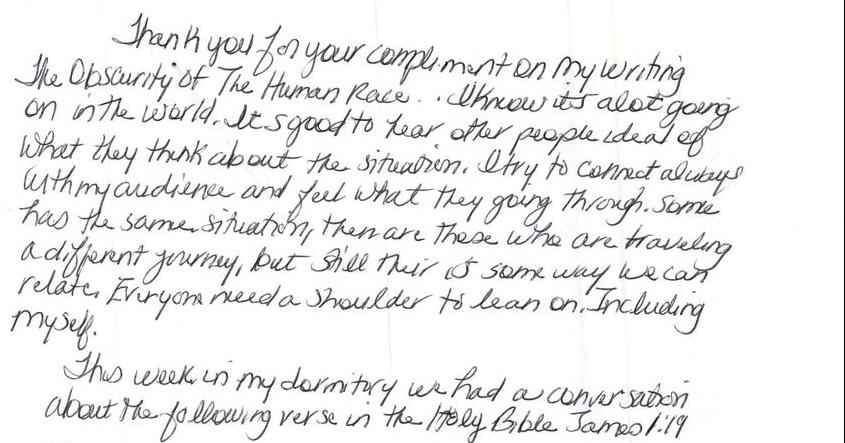 Thank you for your compliment on my writing
The Obscurity of The Human Race.. I know it's alot going
on in the world. It's good to hear other people ideal of
what they think about the situation. I try to connect always
with my audience and feel what they going through. Some
has the same situation, then are those who are traveling
a different journey, but still their is some way we can
relate. Everyone need a shoulder to lean on. Including
myself.
This week in my dormitory we had a conversation
about the following verse in the Holy Bible James 1:19